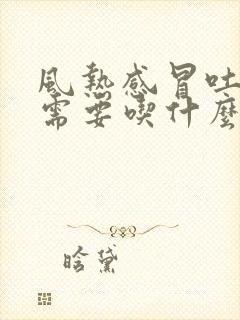 風熱感冒吐
需要喫什麼
晗黛